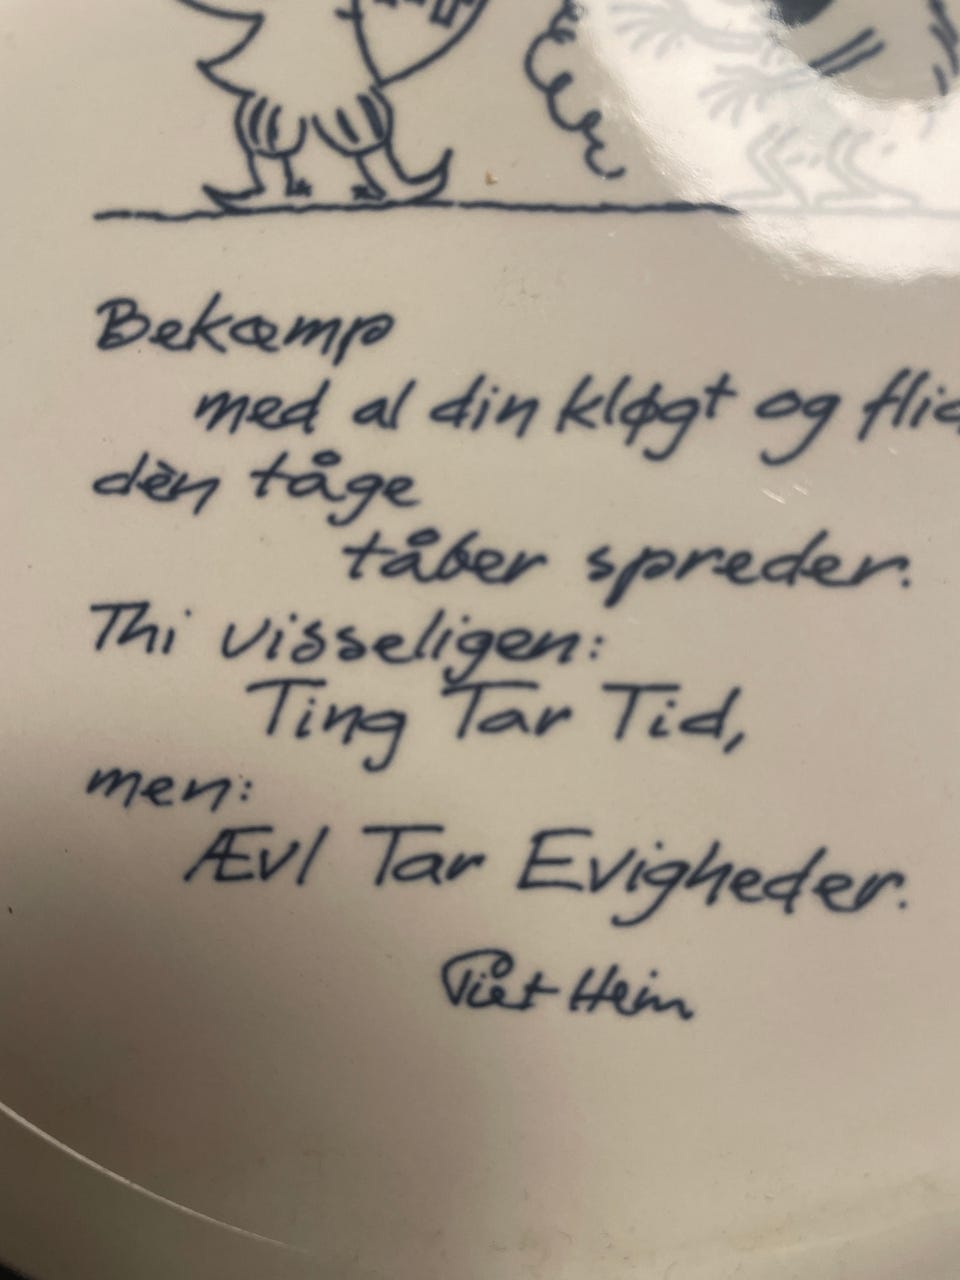 Bekæmp
med al din kløgt og flid
dèn tåge
tåber spreder.
Thi visseligen:
Ting Tar Tid,
men:
Ævl Tar Evigheder.
Piet Hein